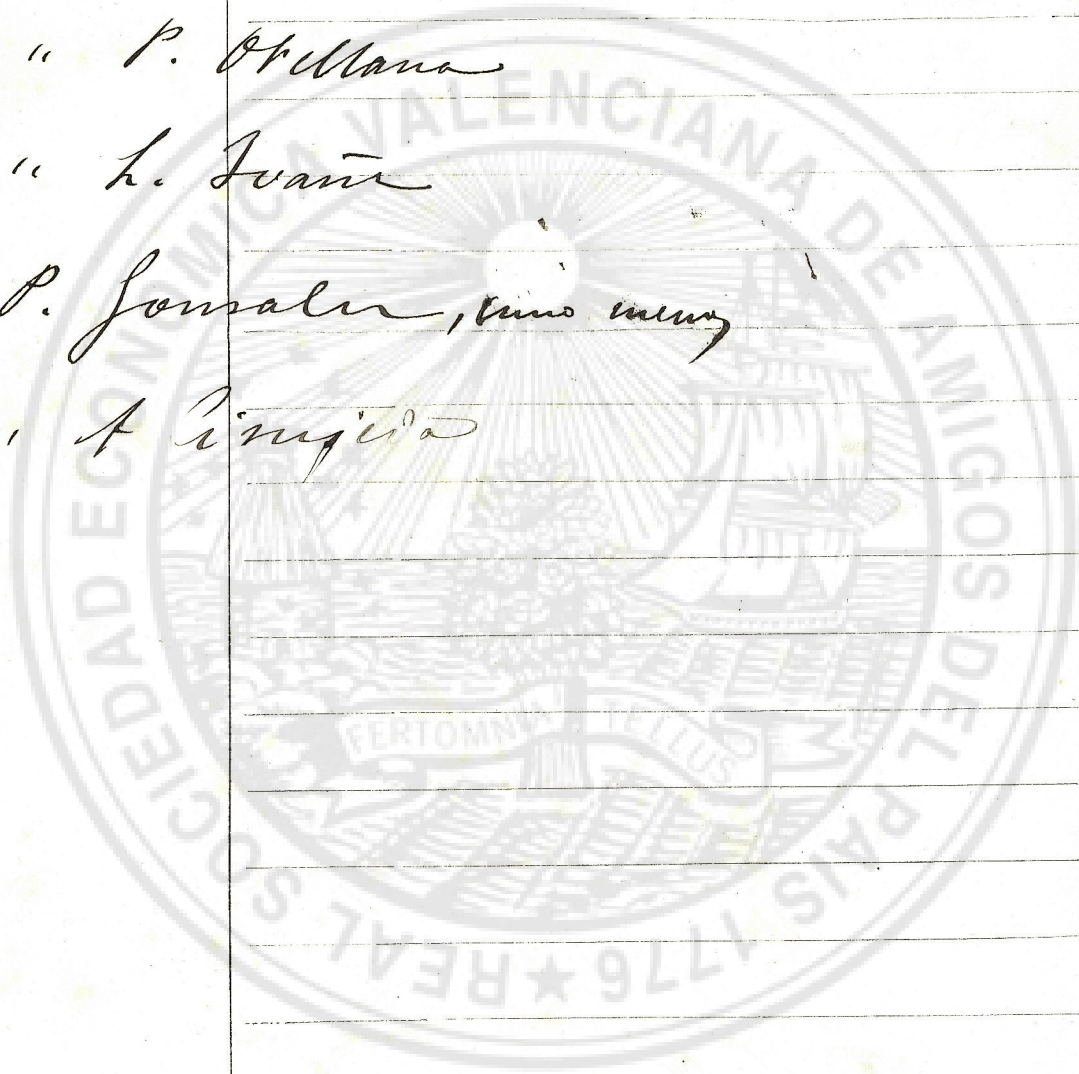 " P. Orellana
" L. Ivañez
P. Gonsalez, menos
A Cirujeda
REAL SOCIEDAD ECONOMICA VALENCIANA DE AMIGOS DEL PAIS 1776 ★
FERT OMNIA TELLUS